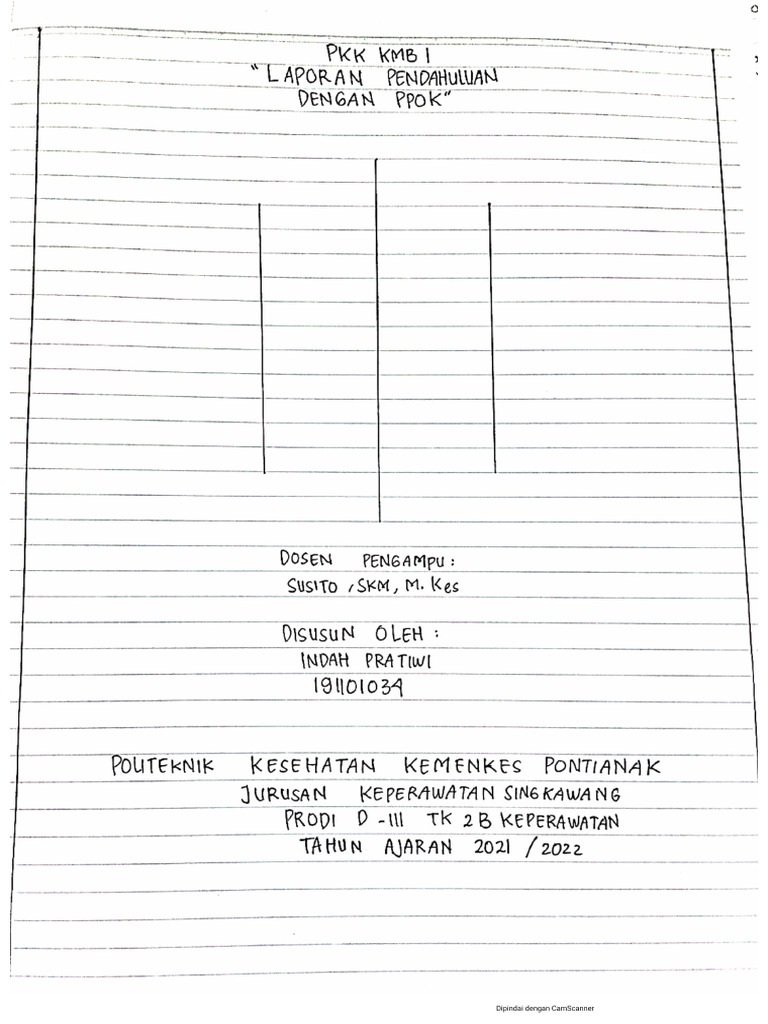 PKK KMB I
"LAPORAN PENDAHULUAN
DENGAN PPOK"
DOSEN PENGAMPU :
SUSITO, SKM, M. Kes
DISUSUN OLEH :
INDAH PRATIWI
191101034
POLITEKNIK KESEHATAN KEMENKES PONTIANAK
JURUSAN KEPERAWATAN SINGKAWANG
PRODI D-III TK 2B KEPERAWATAN
TAHUN AJARAN 2021 / 2022
Dipindai dengan CamScanner